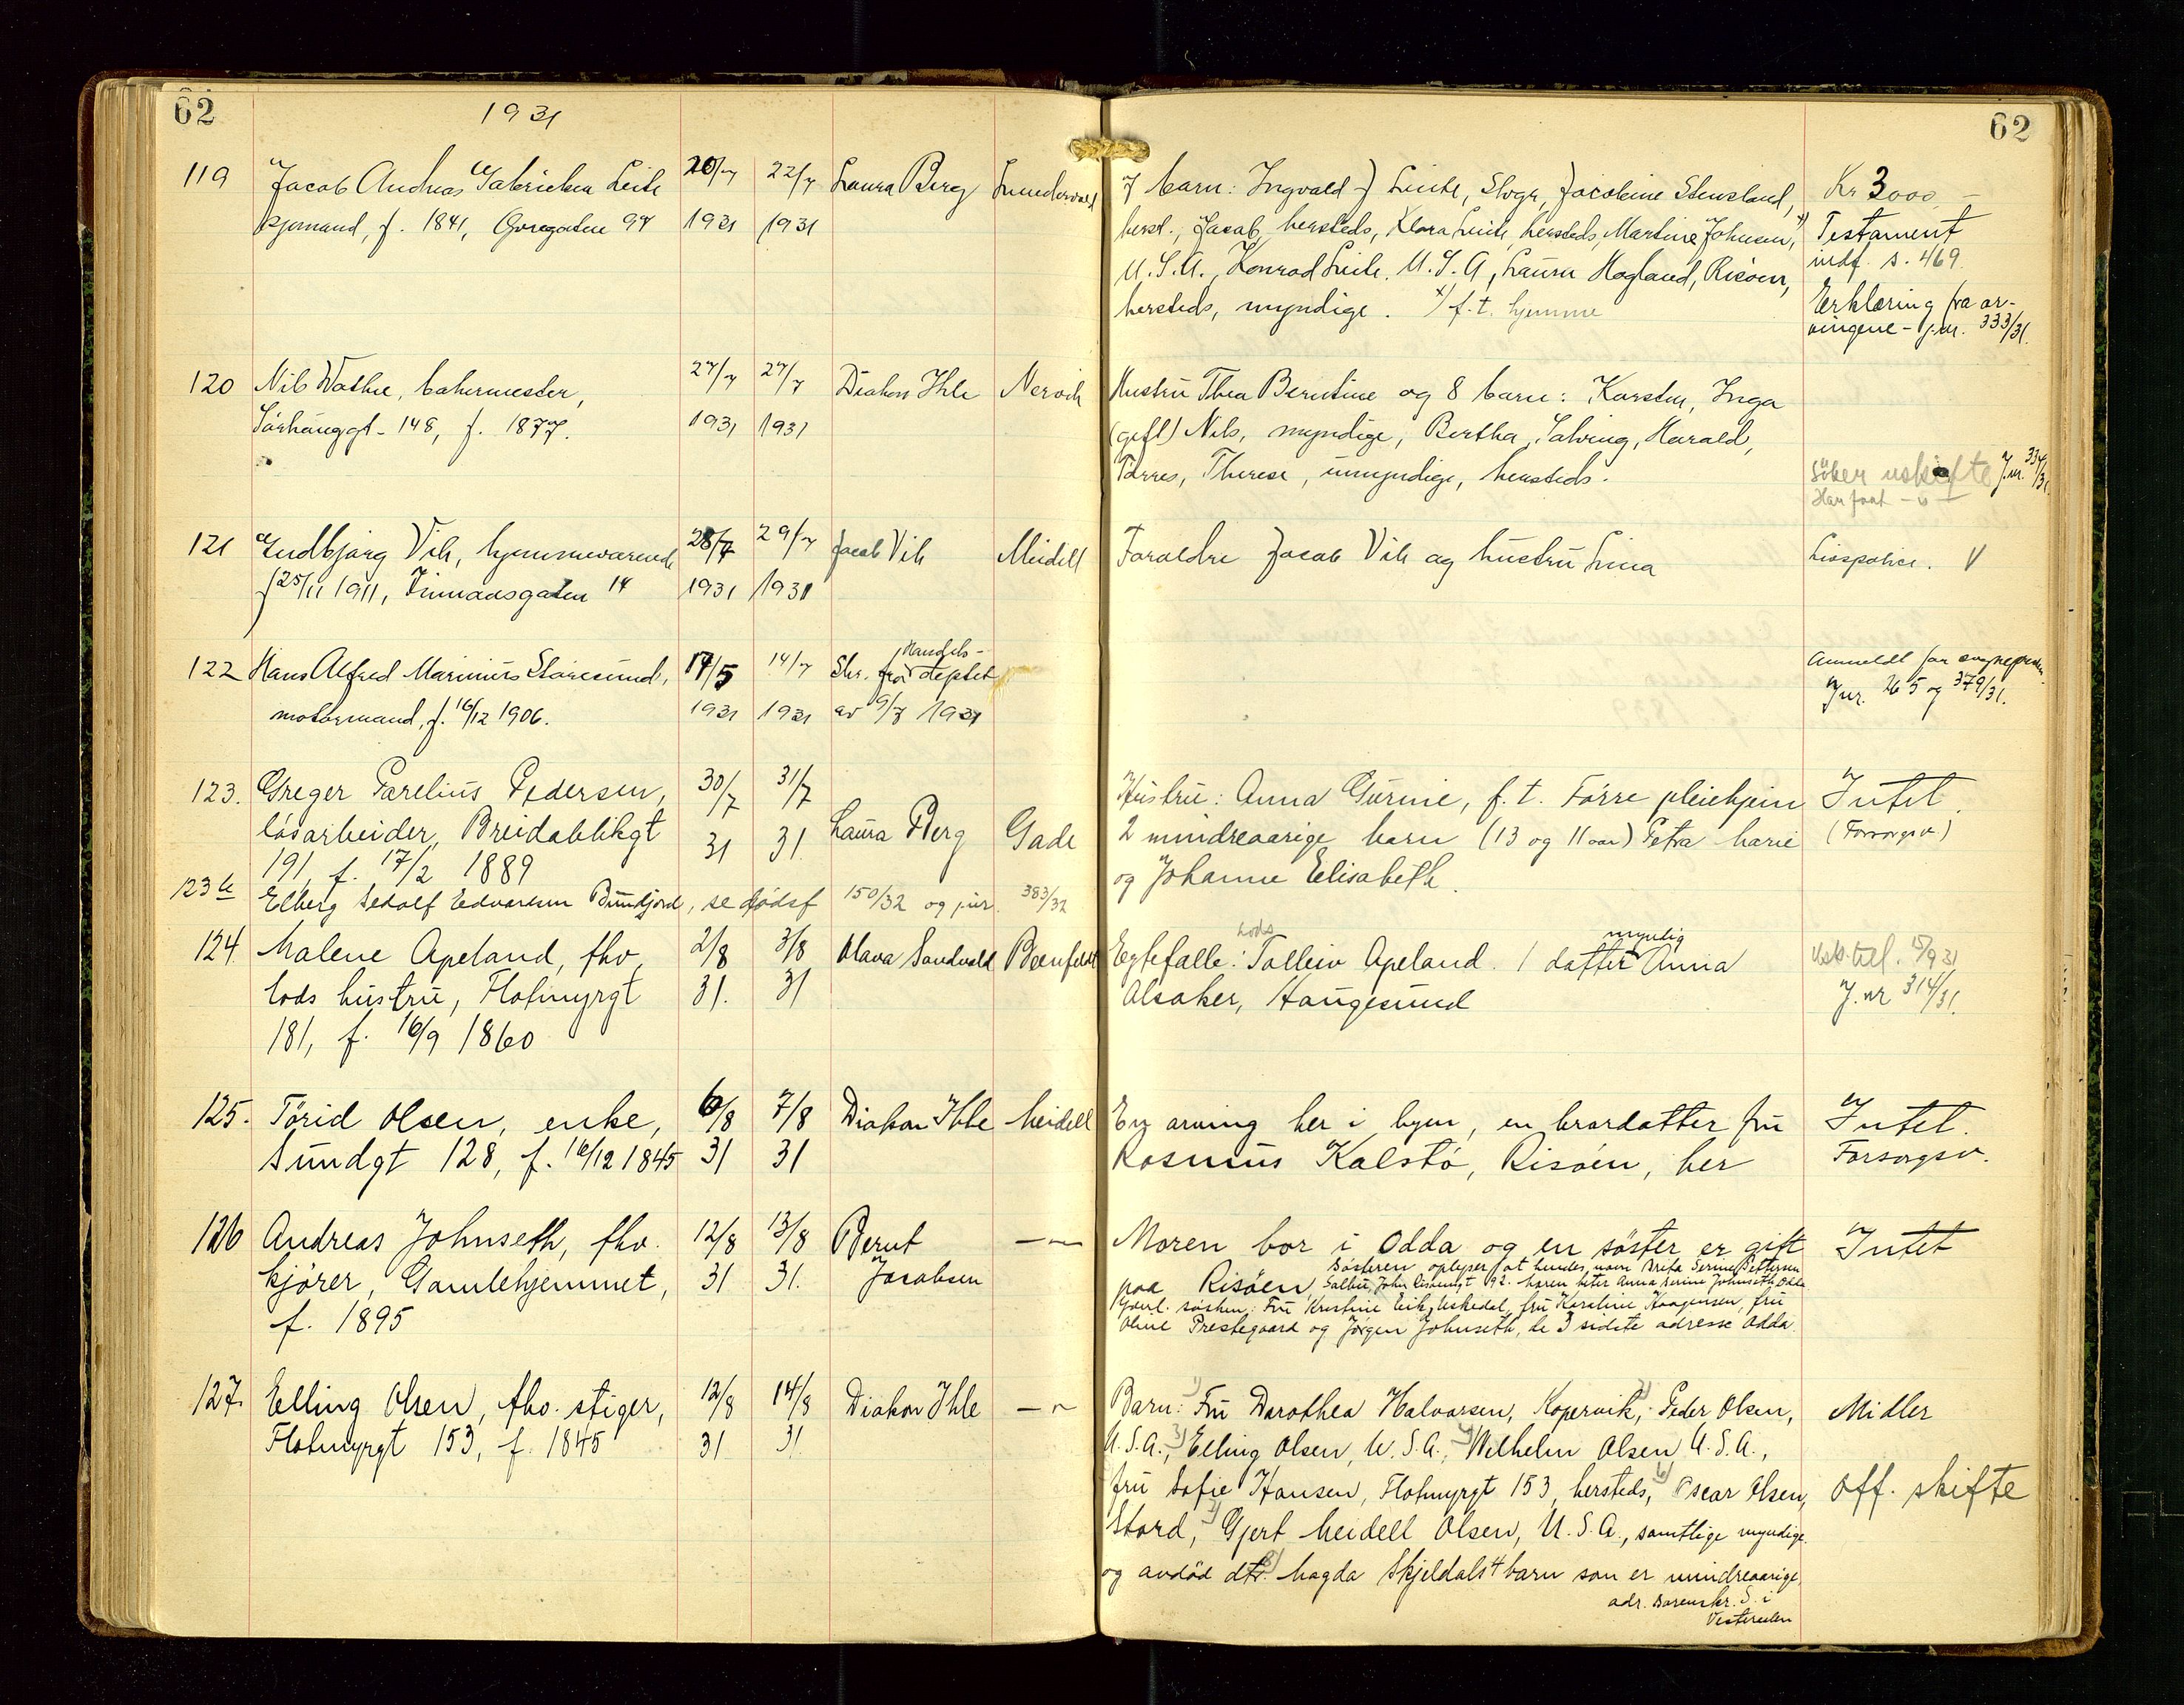 62
1931
62
119 Jacob Andreas Gabrielsen Leite 20/7 22/7 Laura Berg
f. 1841, 94 1931 1931
7 barn: Ingvald J Leite, Jacobine Stensland, Kr 3000,-
Jacob, hersteds, Klara Leite, hersteds, Martine Johnsen, x) Testament
U.S.A., Konrad Leite, U.S.A, Laura Hogland, Risöen, indf. s. 469.
hersteds, myndige. x) f.t. hjemme Erklæring fra ar-
vingene - j.nr. 333/31.
120 Nils Wathne, bakermester, 27/7 27/7 Diakon Ihle
Sörhauggt. 148, f. 1877. 1931 1931
Hustru Thea Berntine og 8 barn: Karsten, Inga
(gift) Nils, myndige, Bertha, Harald,
Torres, Therese, umyndige, hersteds.
söker uskifte J.nr. 334/31.
Har faat - " -
121 Gudbjørg Vik, hjemmeværende 28/7 29/7 Jacob Vik Meidell
f 25/11 1911, gaten 14 1931 1931
Foraldre Jacob Vik og hustru Lina
Livspolice. V
122 Hans Alfred Marinius Storesund, 14/7 Skr. fra Handels-
deptet
motormand, f. 16/12 1906. 1931 1931 av 9/7 1931
Anmeldt for sognepresten
Jnr. 265 og 379/31.
123. Greger Parelius Pedersen, 30/7 31/7
lösarbeider, Breidablikgt 31 31. Laura Berg Gade
191, f. 17/2 1889
Hustru: Anna Gurine, f. t. Förre pleiehjem Intet.
2 mindreaarige barn (13 og 11 aar) Petra Marie (Forsorgsv)
og Johanne Elisabeth.
123b Elberg Sedolf Edvardsen Bundjord, se dødsf 150/32 og jnr. 383/32
124. Malene Apeland, fhv. 2/8 3/8 Olava Sandvold
lods hustru, Flotmyrgt 31. 31
181, f. 16/9 1860
Egtefælle: lods Tolleiv Apeland. 1 datter myndig Anna
Alsaker, Haugesund
J. nr 314/31.
125. Törid Olsen, enke, 6/8 7/8 Diakon Ihle Meidell
Sundgt 128, f. 16/12 1845 31 31
En arving her i byen, en brordatter fru Intet.
Rasmus Kalstö, Risöen, her Forsorgsv.
126 Andreas Johnseth, fhv. 12/8 13/8 Bernt - " -
kjörer, Gamlehjemmet, 31 31. Jacobsen
f. 1895
Moren bor i Odda og en söster er gift Intet
paa Risöen, Sösteren oplyser at hendes navn Brita Serine Pettersen
92. Moren heter Anna Serine Johnseth, Odda
sösken: Fru Kristine Eik, Uskedal, fru Karoline Haagensen, fru
Oline Prestegaard og Jörgen Johnseth, de 3 sidste adresse Odda.
127. Elling Olsen, fhv. stiger, 12/8 14/8 Diakon Ihle - " -
Flotmyrgt 153, f. 1845 31 31.
Barn: 1) Fru Dorothea Halvorsen, Kopervik, 2) Peder Olsen, Midler
U.S.A., 3) Elling Olsen, U.S.A., 4) Wilhelm Olsen U.S.A.,
fru Sofie Hansen, Flotmyrgt 153, hersteds, 6) Oscar Olsen, Off. skifte
Stord, 7) Gjert Meidell Olsen, U.S.A., samtlige myndige.
og avdöd dtr. 8) Magda Skjeldals 4 barn som er mindreaarige.
adr. S. i
Vesteraalen